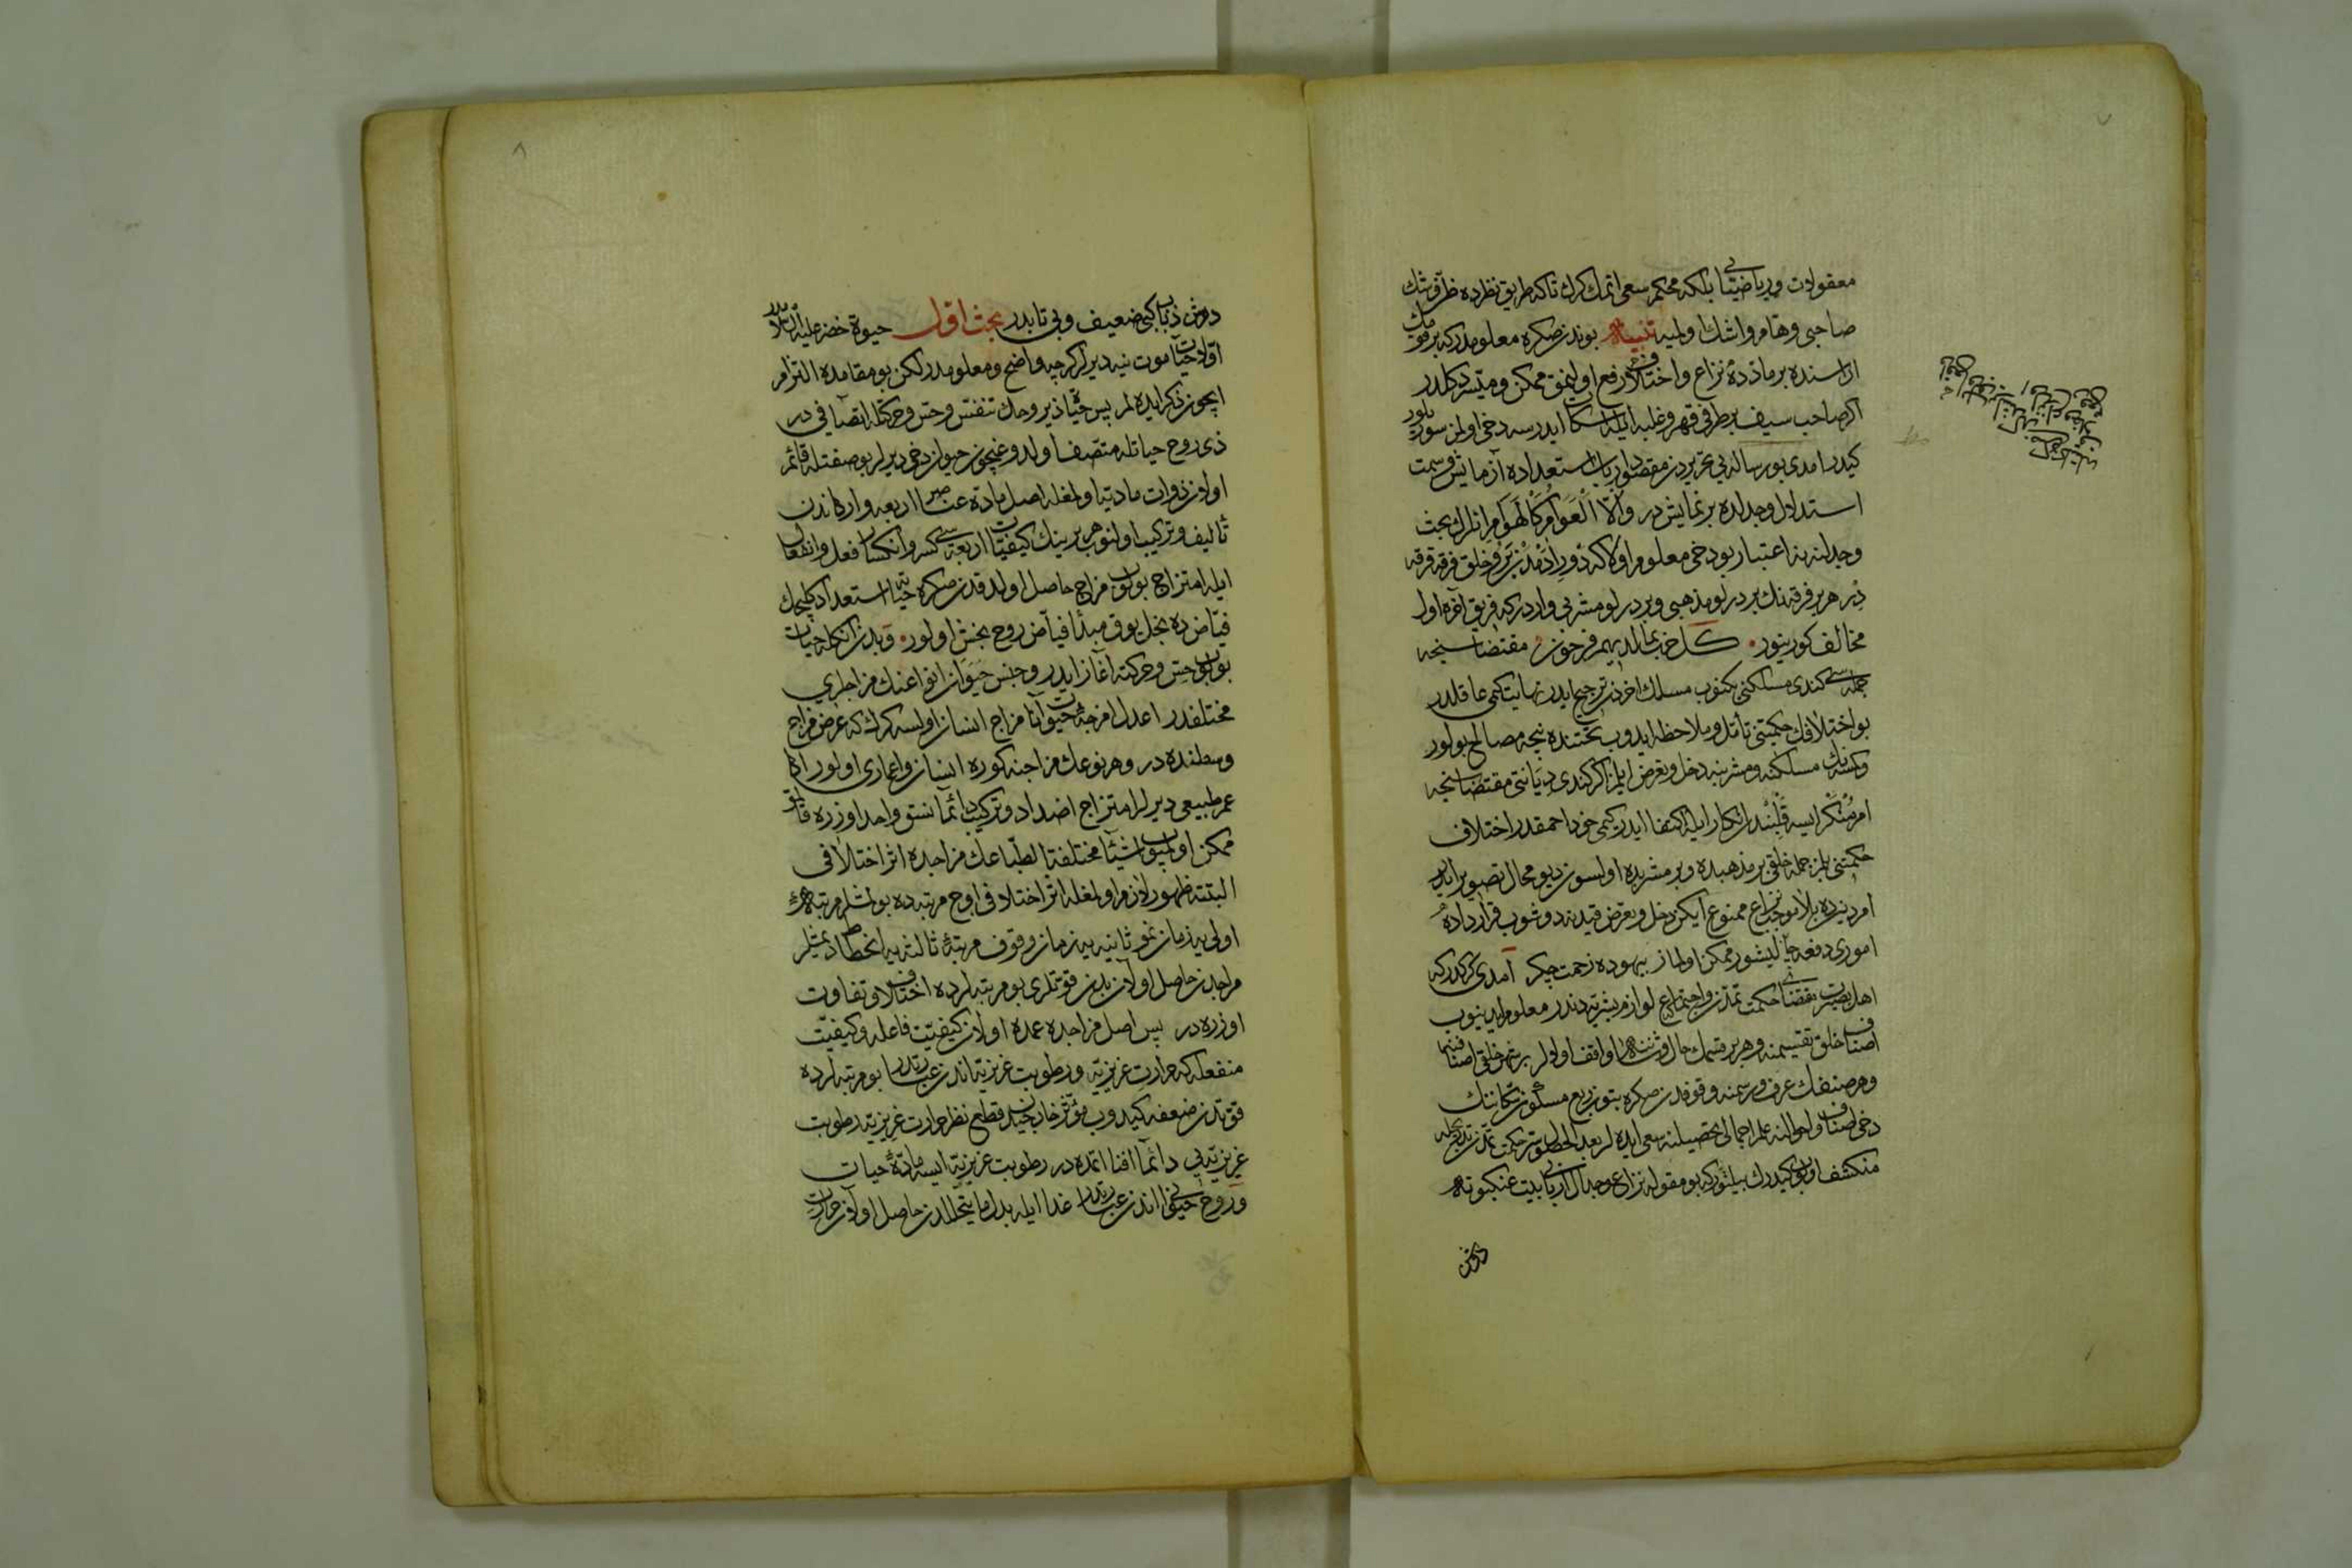 معقولات و رياضيات بلكه محكم سعى اتمك كرك تاكه طريق نظرده ظن و شك
صاحبى و هام و اشك اولميه تنبيه بوندن صكره معلومدركه بر قومك
اراسنده بر ماده ده نزاع و اختلاف رفع اولنمق ممكن و ميسر دكلدر
اكر صاحب سيف بر طرفى قهر و غلبه ايله اسكات ايدرسه دخى اولن سوز يورر
كيدر امدى بو رساله يى تحريردن مقصد ارباب استعداده آزمايش و سمت
استدلال و جدلده بر نمايش در والا العوام كالهوام انلرك بحث
و جدلنه نه اعتبار بو دخى معلوم اولاكه دور آدمدنبرو خلق فرقه فرقه
در هر بر فرقه نك بر درلو مذهبى و بر درلو مشربى واردركه فريق آخره اول
مخالف كورينور كل حزب بما لديهم فرحون مقتضاسنجه
جمله سى كندى مسلكنى بكنوب مسلك آخردن ترجيح ايدر نهايت كمى عاقلدر
بو اختلافك حكمتنى تأمل و ملاحظه ايدوب تحتنده نيجه مصالح بولور
و كمسه نك مسلكنه و مشربنه دخل و تعرض ايلمز اكر كندى ديانتى مقتضاسنجه
امر منكر ايسه قلبندن انكار ايله اكتفا ايدر كمى خود احمقدر اختلاف
حكمتنى بلمز جمله خلق بر مذهبده و بر مشربده اولسون ديو محال تصوير ايدر
امر دينده بلا موجب نزاع ممنوع ايكن دخل و تعرض قيدنه دوشوب قرارداده
امورى دفعه چاليشور ممكن اولماز بيهوده زحمت چكر امدى كركدركه
اهل بصيرت مقتضاى حكمت تمدن و اجتماع لوازم بشريه دندر معلوم ايدينوب
اصناف خلق تقسيمنه و هر بر قسمك حال و شاننه واقف اوله لر بر شهر خلقى اصنافنه
و هر صنفك عرف و رسمنه وقوفدن صكره بتون ربع مسكون سكاننك
دخى اصناف و احوالنه علم اجمالى تحصيلنه سعى ايده لر بعد الحصول سر حكمت تمدن تدريجله
منكشف اولوب كيدرك بيلنوركه بو مقوله نزاع و جدال اربابى بيت عنكبوته
دوشن
دوشن ذباب كبى ضعيف و بى تابدر بحث اول حيوة خضر عليه السلامدر
اولا حيات موت نيه ديرلر اكرچه واضح و معلومدر لكن بو مقامده التزام
ايچون ذكر ايده لم پس حيات ذى روحك تنفس و حس و حركتله اتصافى در
ذى روح حياتله متصف اولدوغيچون حيوان دخى ديرلر بو صفتله قائم
اولان ذوات ماديه اولمغله اصل ماده عناصر اربعه و اركاندن
تأليف و تركيب اولنوب هر برينك كيفيات اربعه سى كسر و انكسار فعل و انفعال
ايله امتزاج بولوب مزاج حاصل اولدقدن صكره حياته استعداد كليجك
فياضده بخل يوق مبدأ فياض روح بخش اولور و بدن انكله حيات
بولوب حس و حركته آغاز ايدر و جنس حيوان انواعنك مزاجلرى
مختلفدر اعدل امزجه حيوانات مزاج انسان اولسه كرك كه عرض مزاج
وسطنده در و هر نوعك مزاجنه كوره انسان و اعمارى اولور اكا
عمر طبيعى ديرلر امتزاج اضداد و تركيب دائما نسق واحد اوزره قالمق
ممكن اولميوب اشياء مختلفة الطباعك مزاجده اثر اختلافى
البته ظهور لازم اولمغله اثر اختلافى اوچ مرتبه ده بولمشلر مرتبه
اولى يه زمان نمو ثانيه يه زمان وقوف مرتبه ثالثه يه انحطاط ديمشلر
مزاجدن حاصل اولان بدن قوتلرى بو مرتبه لرده اختلاف و تفاوت
اوزره در پس اصل مزاجده عمده اولان كيفيت فاعله و كيفيت
منفعله كه حرارت غريزيه و رطوبت غريزيه اندن عبارتدر بو مرتبه لرده
قوتدن ضعفه كيدوب مؤثر خارجيدن قطع نظر حرارت غريزيه رطوبت
غريزيه يى دائما افنا اتمده در رطوبت غريزيه ايسه ماده حيات
و روح حيوانى اندن عبارتدر غدا ايله بدل ما يتحللدن حاصل اولان حرارت